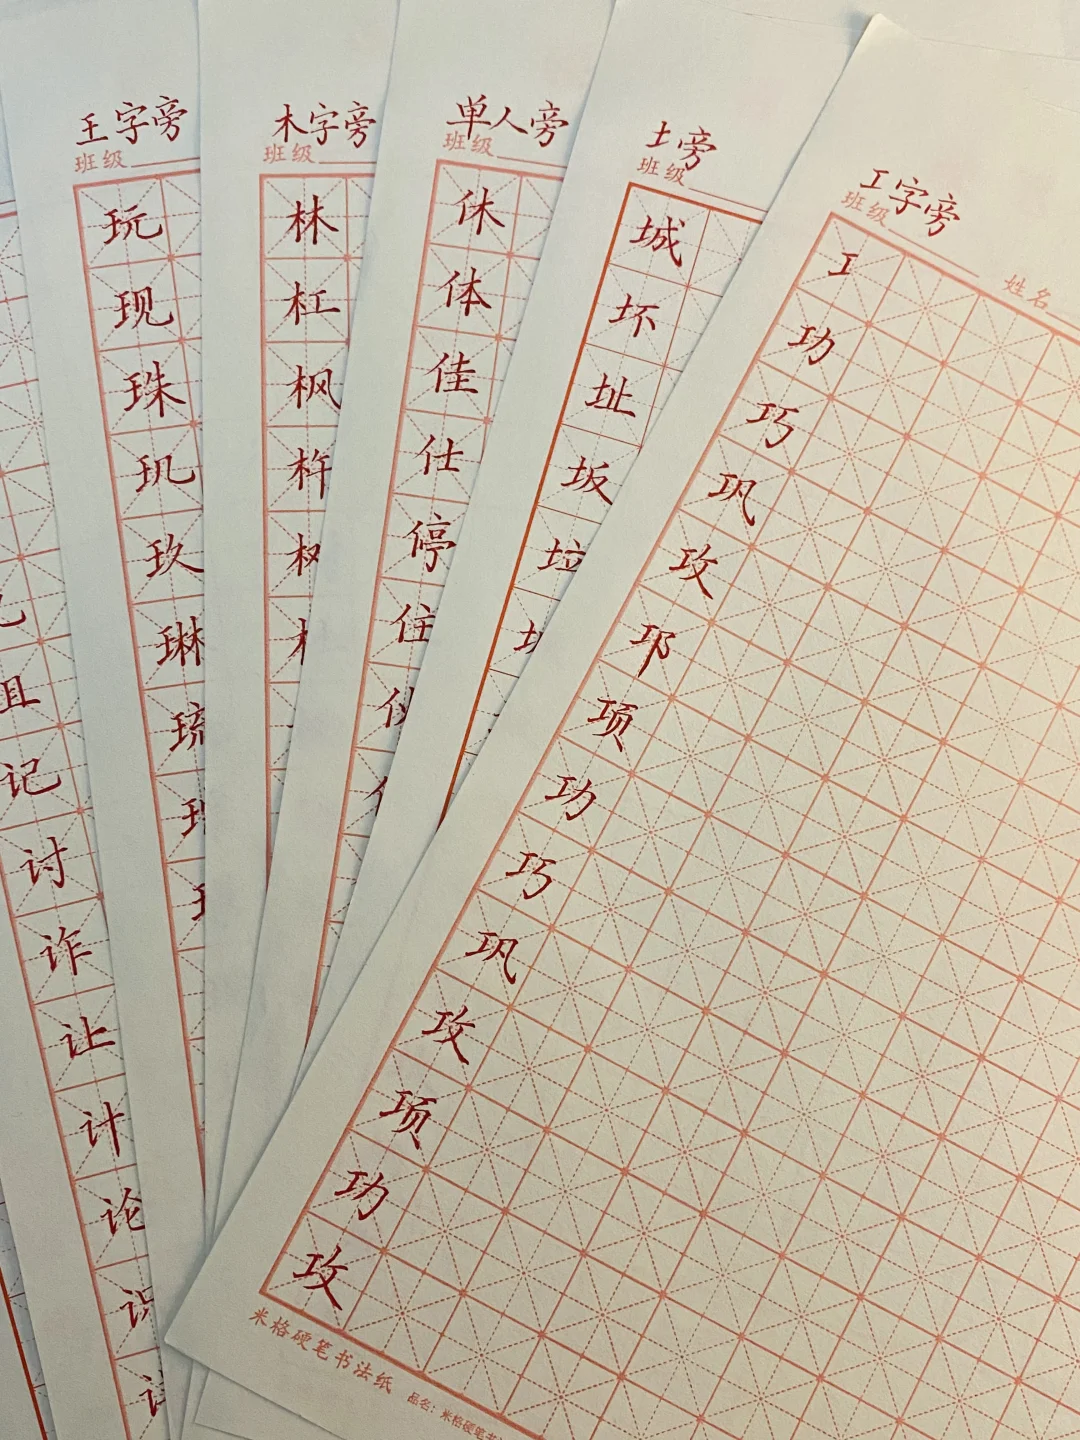 王字旁
班级
玩
现
珠
玑
玖
琳
琉
木字旁
班级
林
杠
枫
杵
单人旁
班级
休
体
佳
仕
停
住
土旁
班级
城
坏
址
坂
垃
工字旁
班级
姓名
工
功
巧
巩
攻
邛
项
功
巧
巩
攻
项
功
攻
米格硬笔书法纸
品名：米格硬笔书
记
讨
诈
让
计
论
识